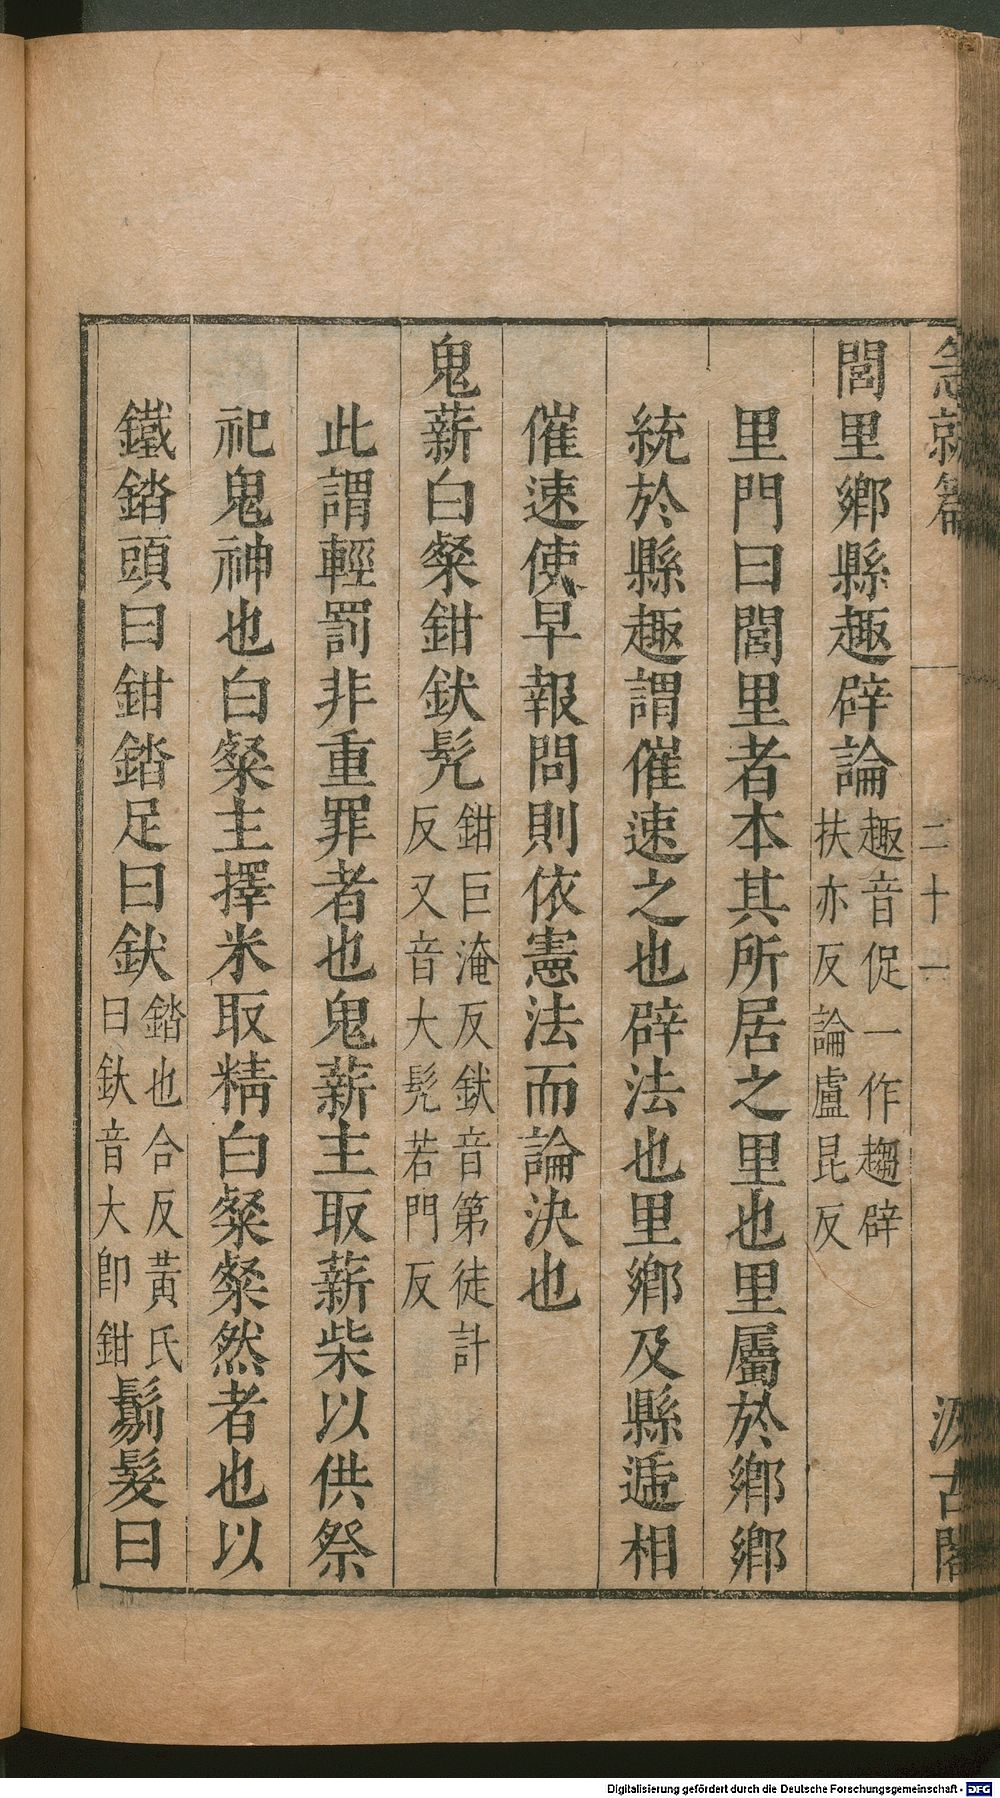 急就篇 二十一 汲古閣
閭里鄉縣趣辟論趣音促一作趨辟扶亦反論盧昆反
里門曰閭里者本其所居之里也里屬於鄉鄉
統於縣趣謂催速之也辟法也里鄉及縣遞相
催速使早報問則依憲法而論決也
鬼薪白粲鉗釱髠鉗巨淹反釱音第徒計反又音大髠若門反
此謂輕罰非重罪者也鬼薪主取薪柴以供祭
祀鬼神也白粲主擇米取精白粲粲然者也以
鐵錔頭曰鉗錔足曰釱錔也合反黃氏曰釱音大卽鉗鬄髮曰
Digitalisierung gefördert durch die Deutsche Forschungsgemeinschaft - DFG